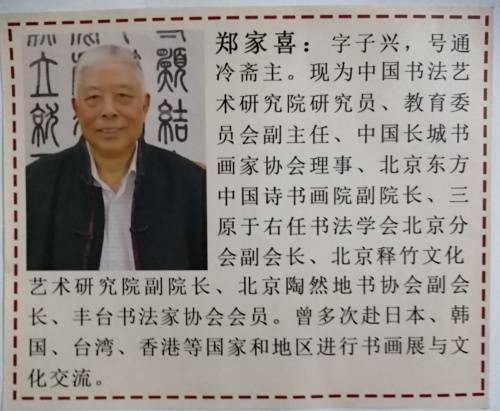 郑家喜：字子兴，号通
冷斋主。现为中国书法艺
术研究院研究员、教育委
员会副主任、中国长城书
画家协会理事、北京东方
中国诗书画院副院长、三
原于右任书法学会北京分
会副会长、北京释竹文化
艺术研究院副院长、北京陶然地书协会副会
长、丰台书法家协会会员。曾多次赴日本、韩
国、台湾、香港等国家和地区进行书画展与文
化交流。